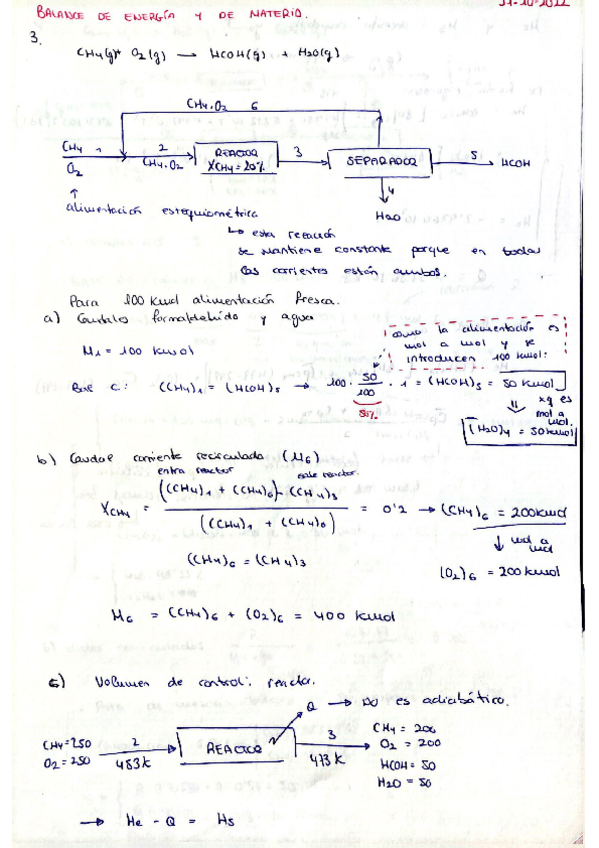 31-10-2022
BALANCE DE ENERGÍA Y DE MATERIA.
3.
CH4(g)+ O2(g) → HCOH(g) + H2O(g)
CH4, O2 6
CH4 1
O2
2
CH4, O2
REACTOR
XCH4=20%
3
SEPARADOR
5 HCOH
4
H2O
alimentación estequiométrica
↳ esta relación
se mantiene constante porque en todas
las corrientes están ambos.
Para 100 Kmol alimentación fresca.
a) Caudales formaldehído y agua
como la alimentación es
mol a mol y se
introducen 100 kmol:
M1 = 100 kmol
Bce C: (CH4)1 = (HCOH)5 → 100 · 50/100 · 1 = (HCOH)5 = 50 kmol
50%
xq es
mol a
mol.
(H2O)4 = 50 kmol
b) Caudal corriente recirculada (M6)
entra reactor
sale reactor.
XCH4 = ((CH4)1 + (CH4)6) - (CH4)3 / ((CH4)1 + (CH4)6) = 0'2 → (CH4)6 = 200 kmol
mol a
mol
(CH4)6 = (CH4)3
(O2)6 = 200 kmol
M6 = (CH4)6 + (O2)6 = 400 kmol
c) Volumen de control: reactor.
Q → no es adiabático.
CH4=250
O2=250
2
483 K
REACTOR
3
473 K
CH4 = 200
O2 = 200
HCOH = 50
H2O = 50
→ He - Q = Hs